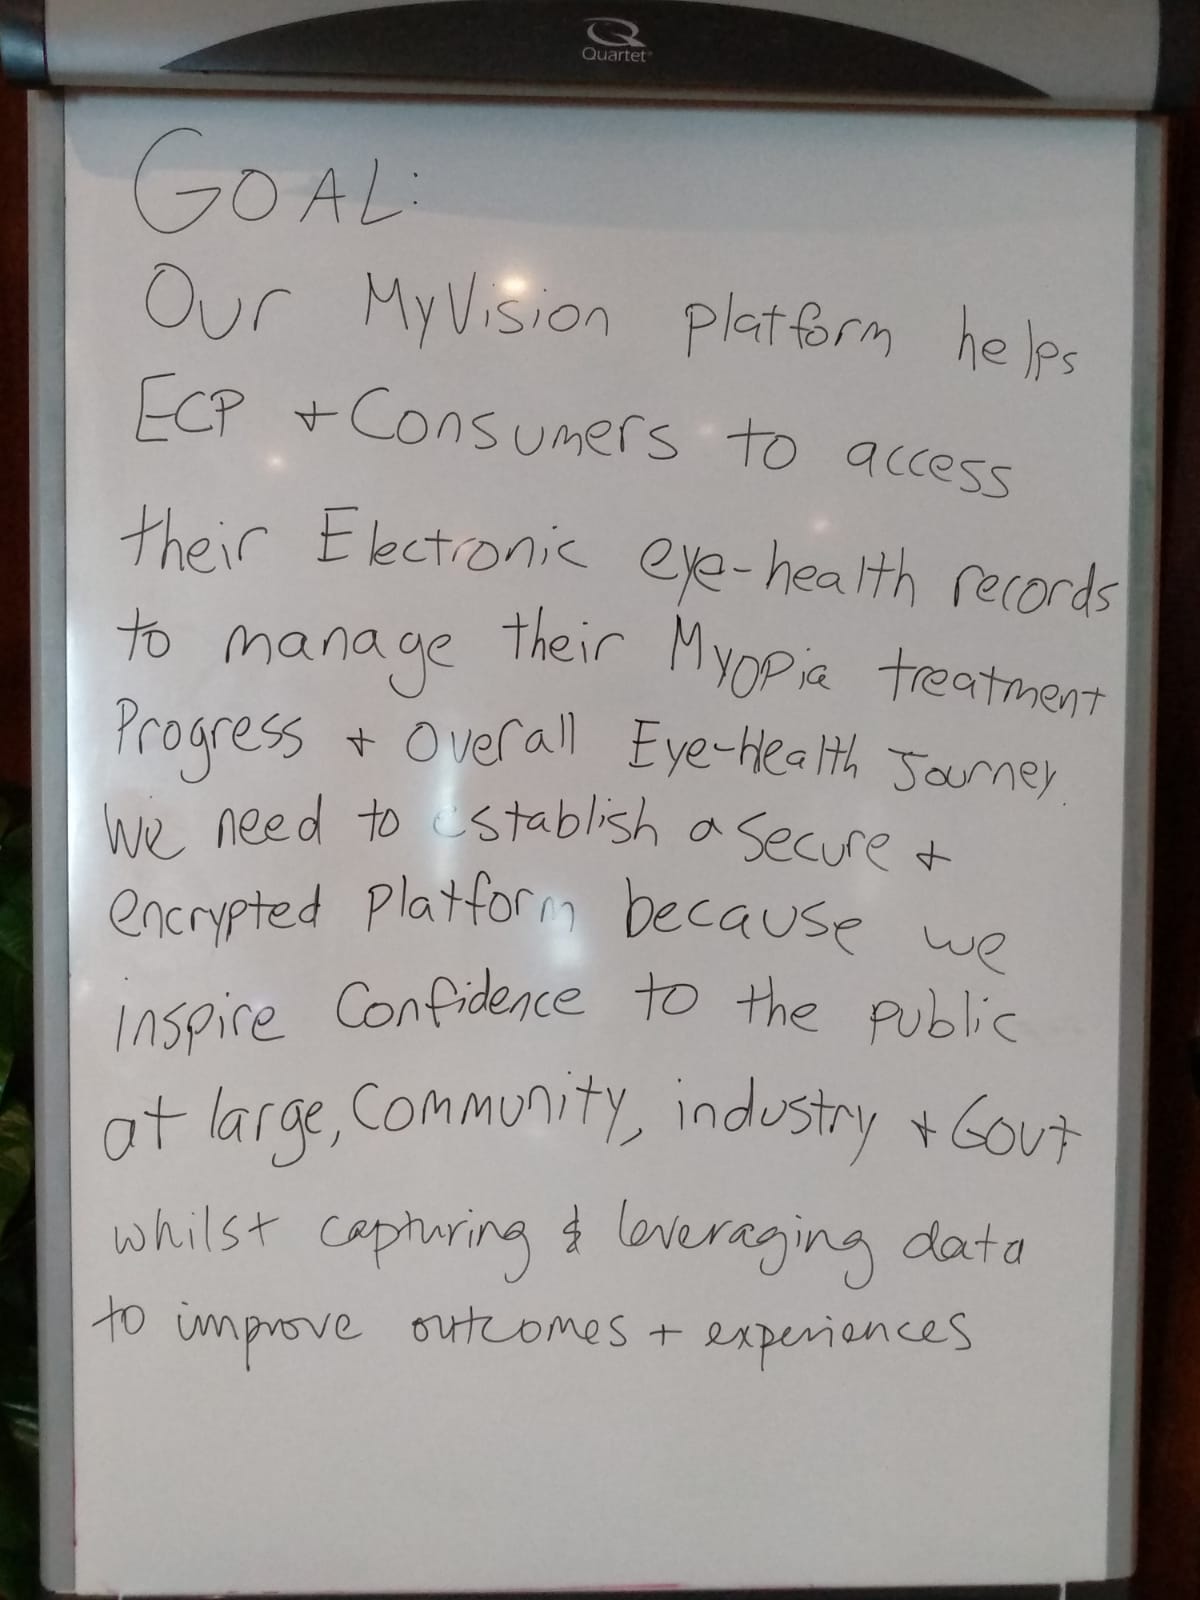 Quartet
GOAL:
Our MyVision platform helps
ECP + Consumers to access
their Electronic eye-health records
to manage their Myopia treatment
Progress + Overall Eye-Health Journey.
We need to establish a secure +
encrypted platform because we
inspire Confidence to the public
at large, Community, industry + Govt
whilst capturing & leveraging data
to improve outcomes + experiences